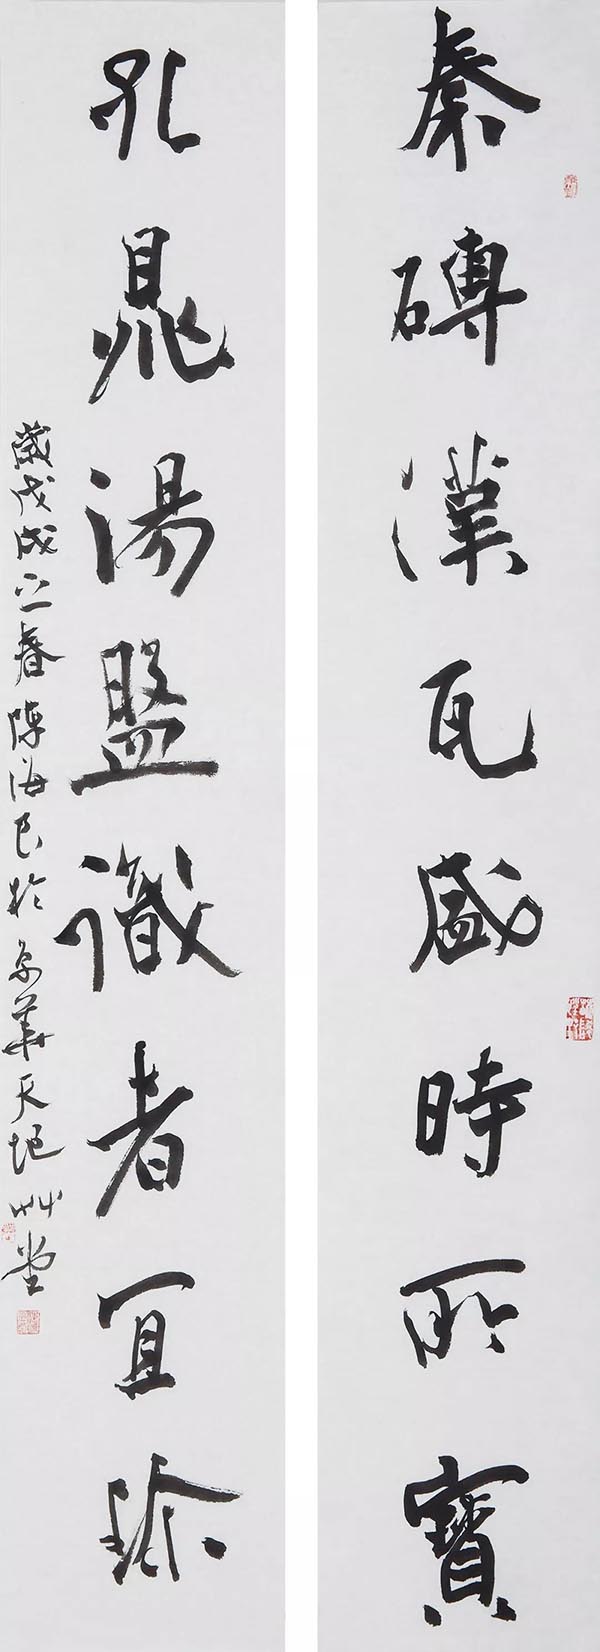 秦磚漢瓦盛時所寶
孔鼎湯盤識者宜珍
歲戊戌之春陳海良於京華天地艸堂